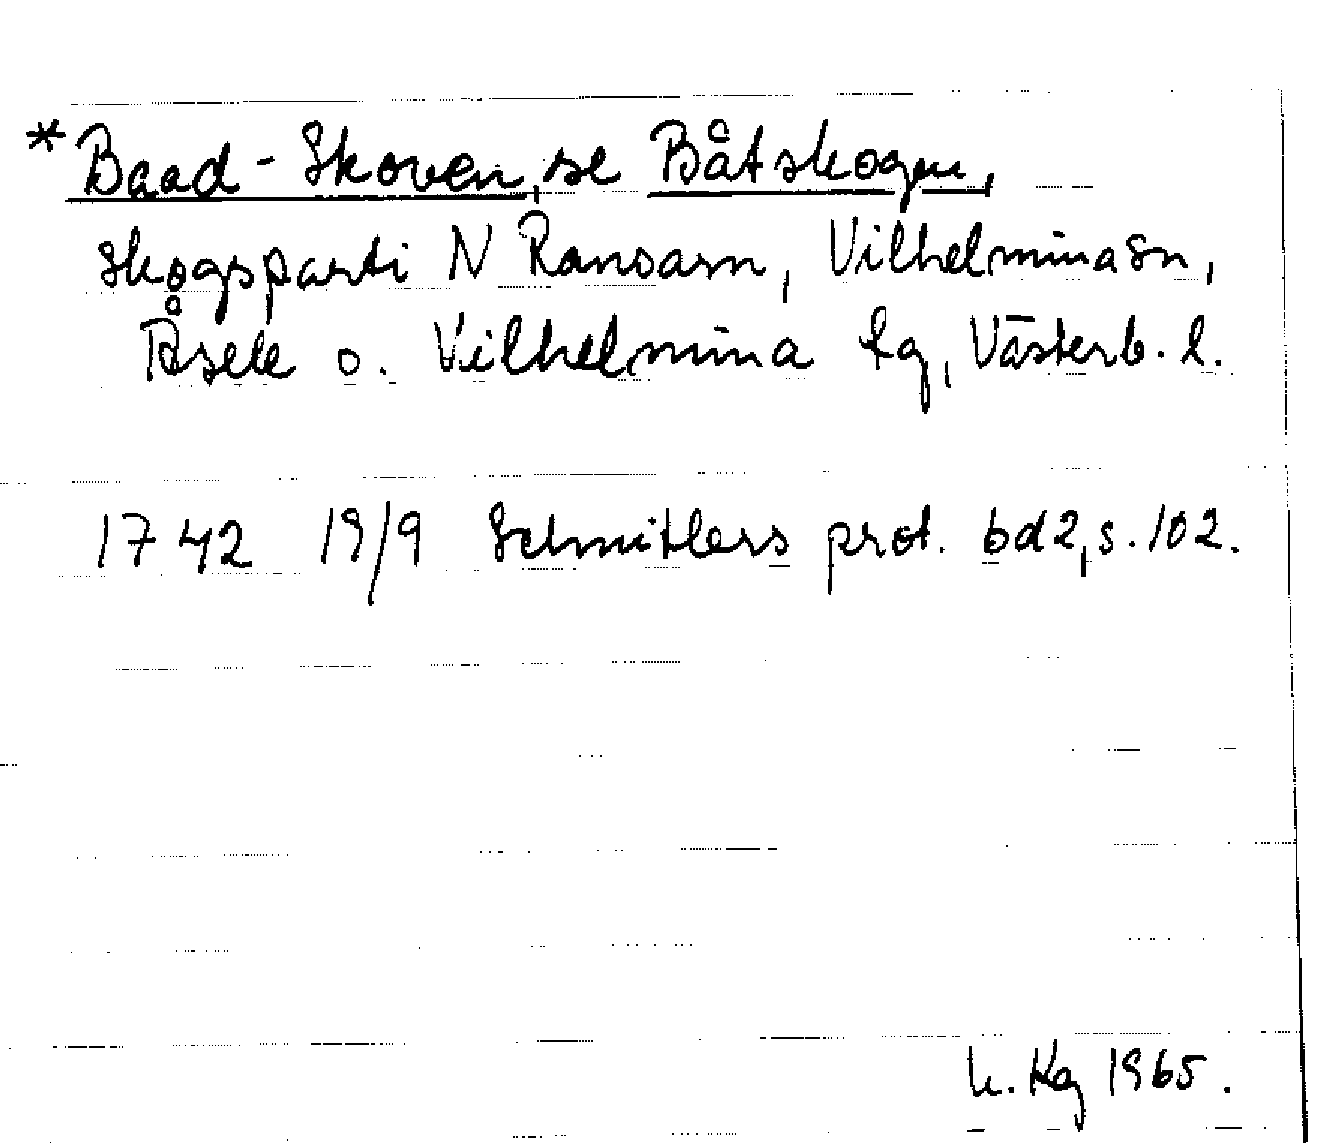 *Baad-Skoven, se Båtskogen,
skogsparti N Ransarn, Vilhelmina sn,
Åsele o. Vilhelmina lg, Västerb. l.
1742 19/9 Schnitlers prot. bd 2, s. 102.
1965.